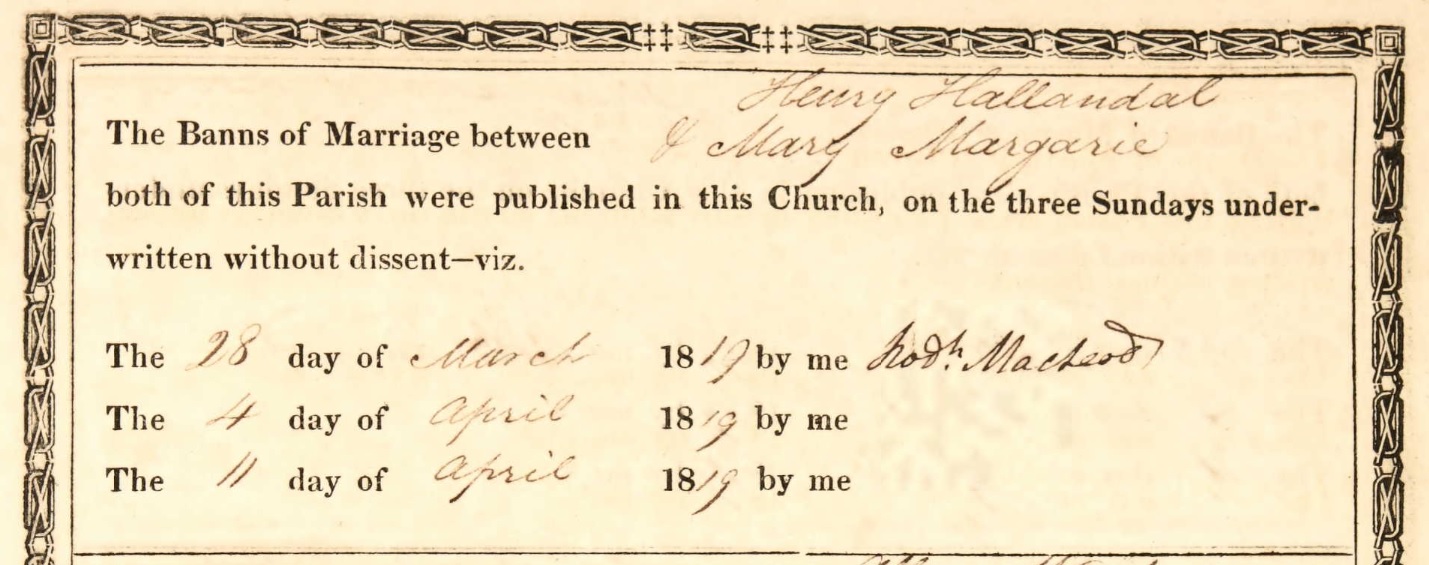 Henry Hallandal
The Banns of Marriage between & Mary Margarie
both of this Parish were published in this Church, on the three Sundays under-
written without dissent—viz.
The 28 day of March 1819 by me Rodk. Macleod
The 4 day of April 1819 by me
The 11 day of April 1819 by me